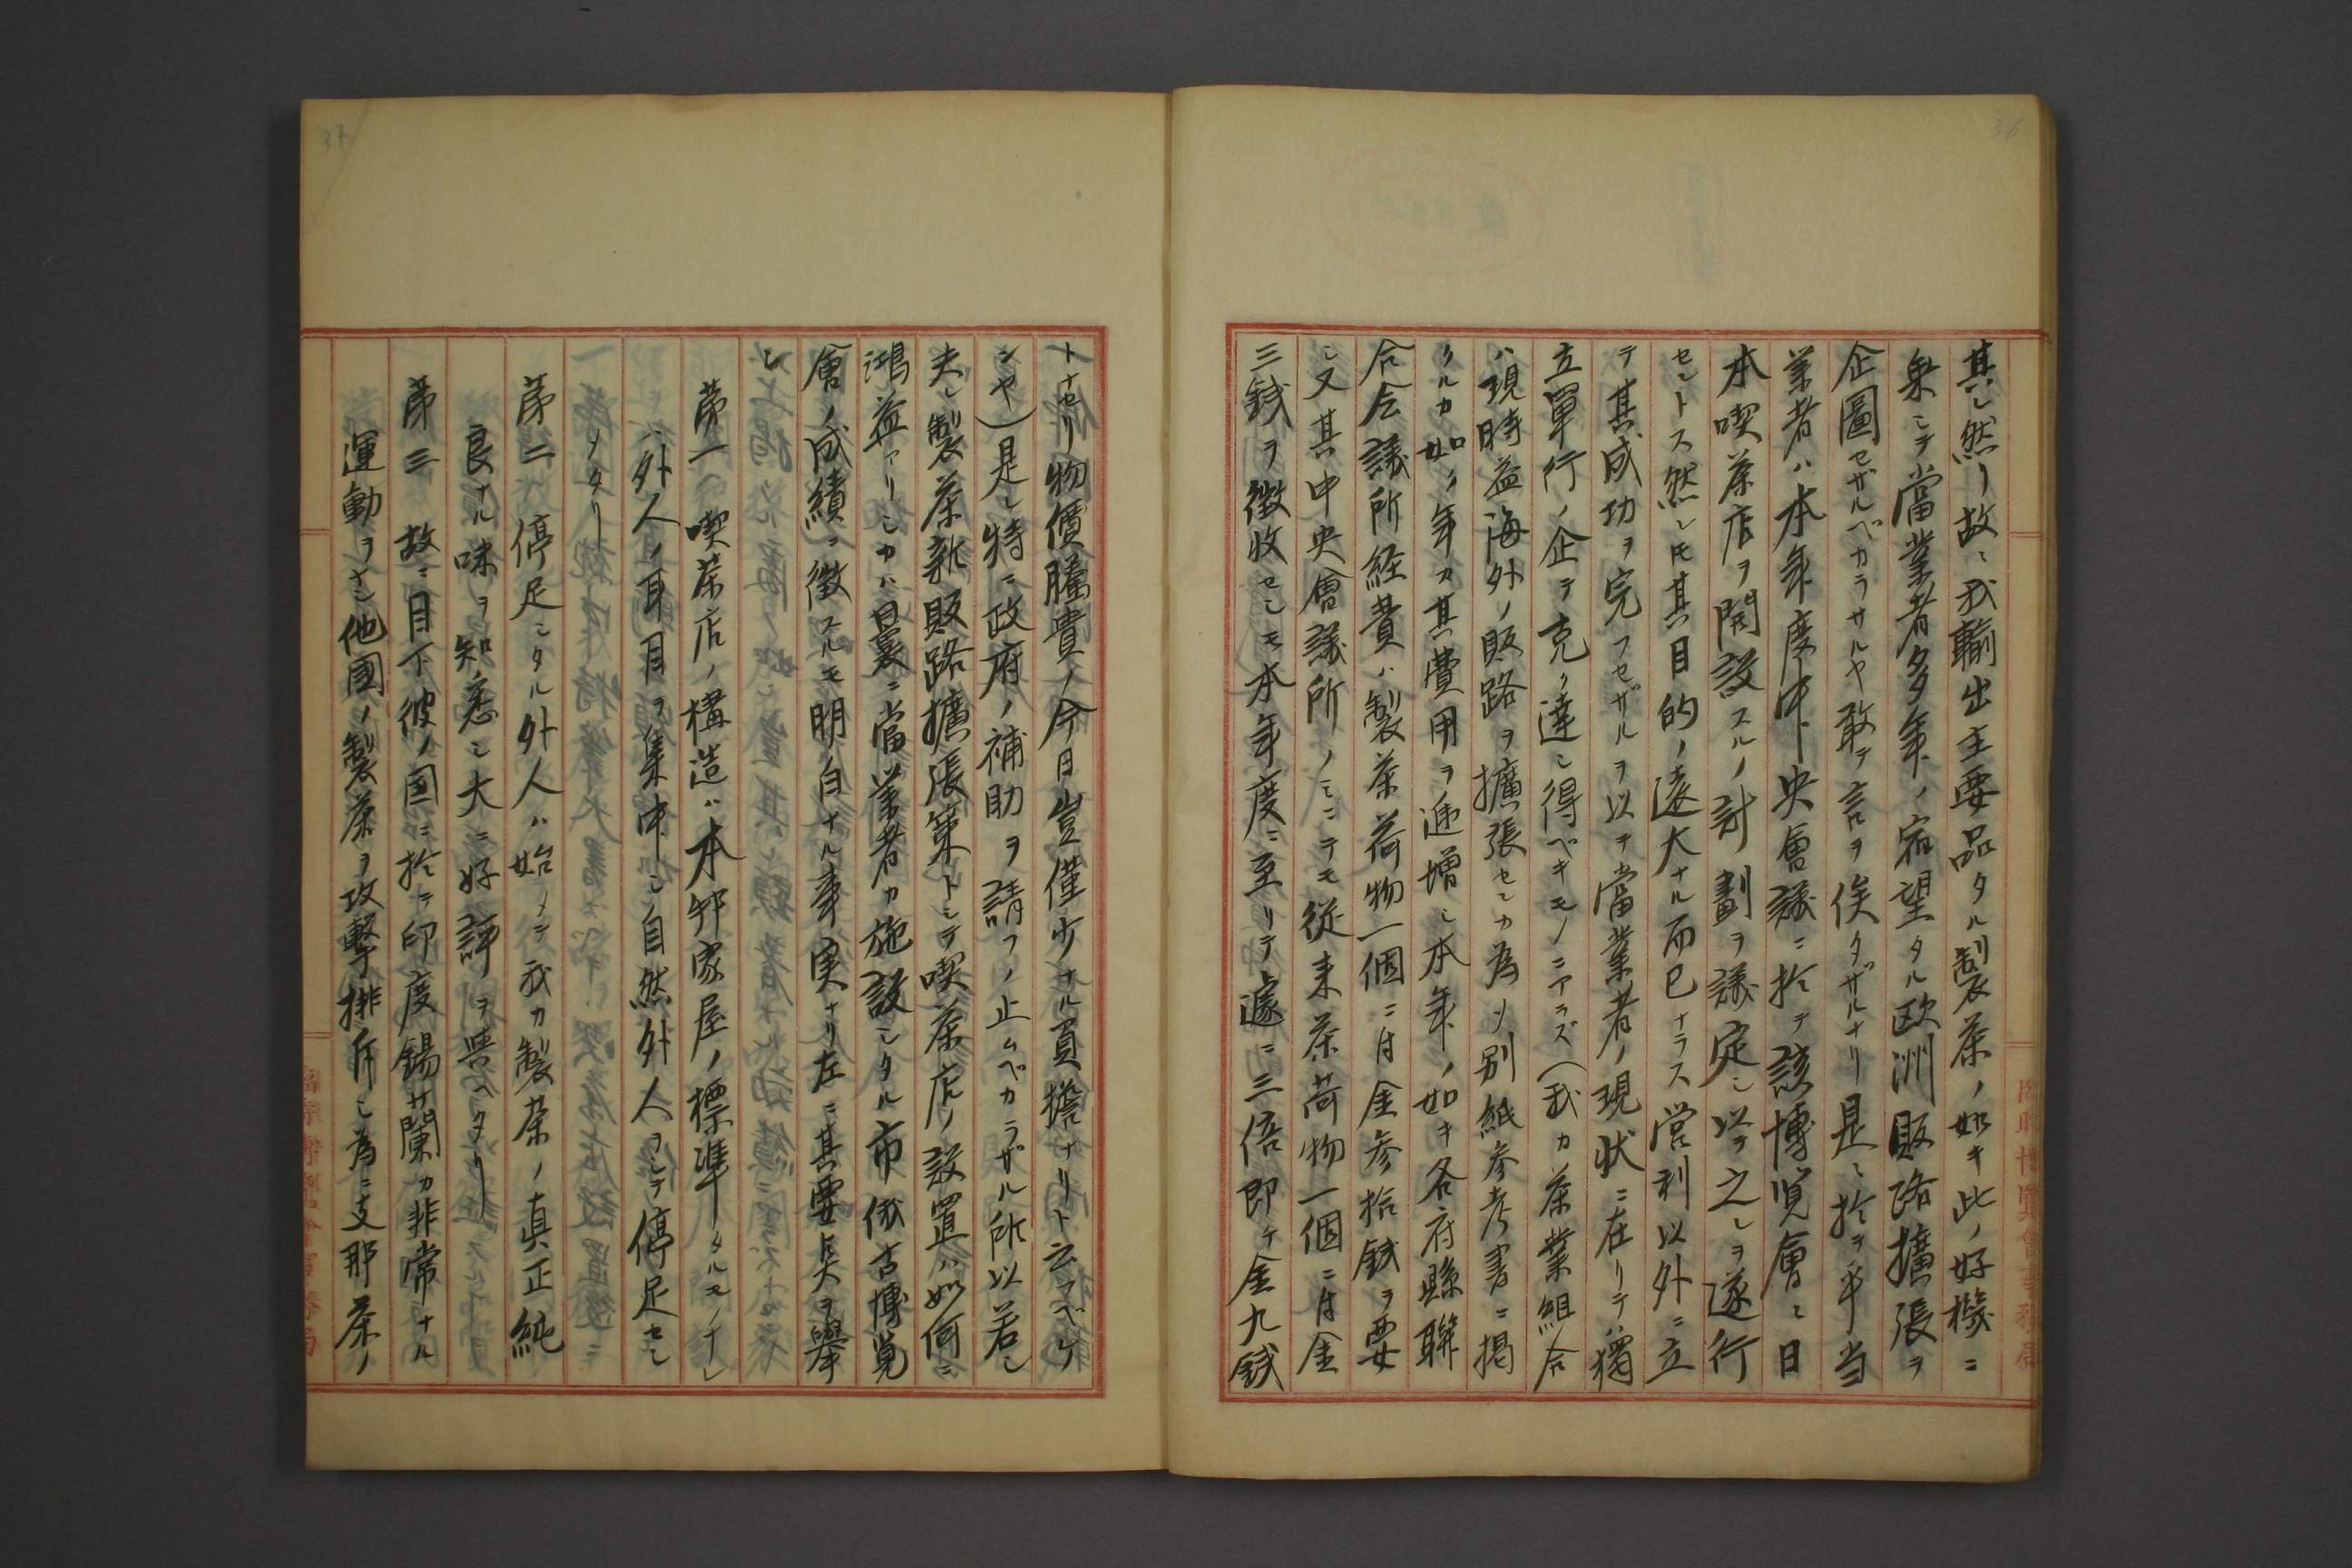 36
其レ然リ故ニ我輸出主要品タル製茶ノ如キ此ノ好機ニ
乗シテ當業者多年ノ宿望タル欧洲販路擴張ヲ
企圖セザルベカラサルヤ敢テ言ヲ俟タザルナリ是ニ於テ乎当
業者ハ本年度中央會議ニ於テ該博覧會ニ日
本喫茶店ヲ開設スルノ計劃ヲ議定シ以テ之レヲ遂行
セントス然レ𪜈其目的ノ遠大ナル而已ナラス営利以外ニ立
テ其成功ヲ完フセザルヲ以テ當業者ノ現状ニ在リテハ獨
立單行ノ企テ克ク達シ得ベキモノニアラズ(我カ茶業組合
ハ現時益海外ノ販路ヲ擴張センカ為メ別紙参考書ニ掲
クルカ如ク年々其費用ヲ逓増シ本年ノ如キ各府縣聯
合会議所経費ハ製茶荷物一個ニ付金参拾銭ヲ要
シ又其中央會議所ノミニテモ従来茶荷物一個ニ付金
三銭ヲ徴收セシモ本年度ニ至リテ遽ニ三倍即チ金九銭
37
トナセリ物價騰貴ノ今日豈僅少ナル負擔ナリト云フベケ
ンヤ)是レ特ニ政府ノ補助ヲ請フノ止ムベカラザル所以若シ
夫レ製茶新販路擴張策トシテ喫茶店ノ設置ハ如何ニ
鴻益アリシカハ曩ニ當業者カ施設シタル市俄古博覧
會ノ成績ニ徴スルモ明白ナル事実ナリ左ニ其要点ヲ舉
レ
第一 喫茶店ノ構造ハ本邦家屋ノ標準タルモノナレ
ハ外人ノ耳目ヲ集中シ自然外人ヲシテ停足セシ
メタリ
第二 停足シタル外人ハ始メテ我カ製茶ノ真正純
良ナル味ヲ知悉シ大ニ好評ヲ與ヘタリ
第三 故ニ目下彼ノ国ニ於テ印度錫蘭カ非常ナル
運動ヲナシ他國ノ製茶ヲ攻撃排斥シ為ニ支那茶ノ